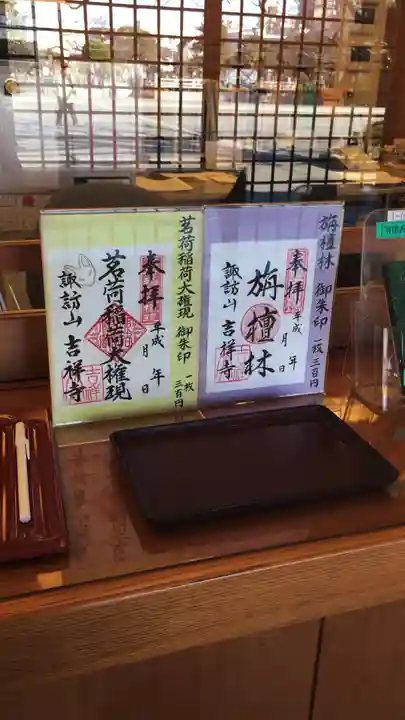 旃檀林 御朱印 一枚三百円
奉拝
平成 年 月 日
旃檀林
諏訪山 吉祥寺
茗荷稲荷大権現 御朱印 一枚 三百円
奉拝
平成 年 月 日
茗荷稲荷大権現
諏訪山 吉祥寺